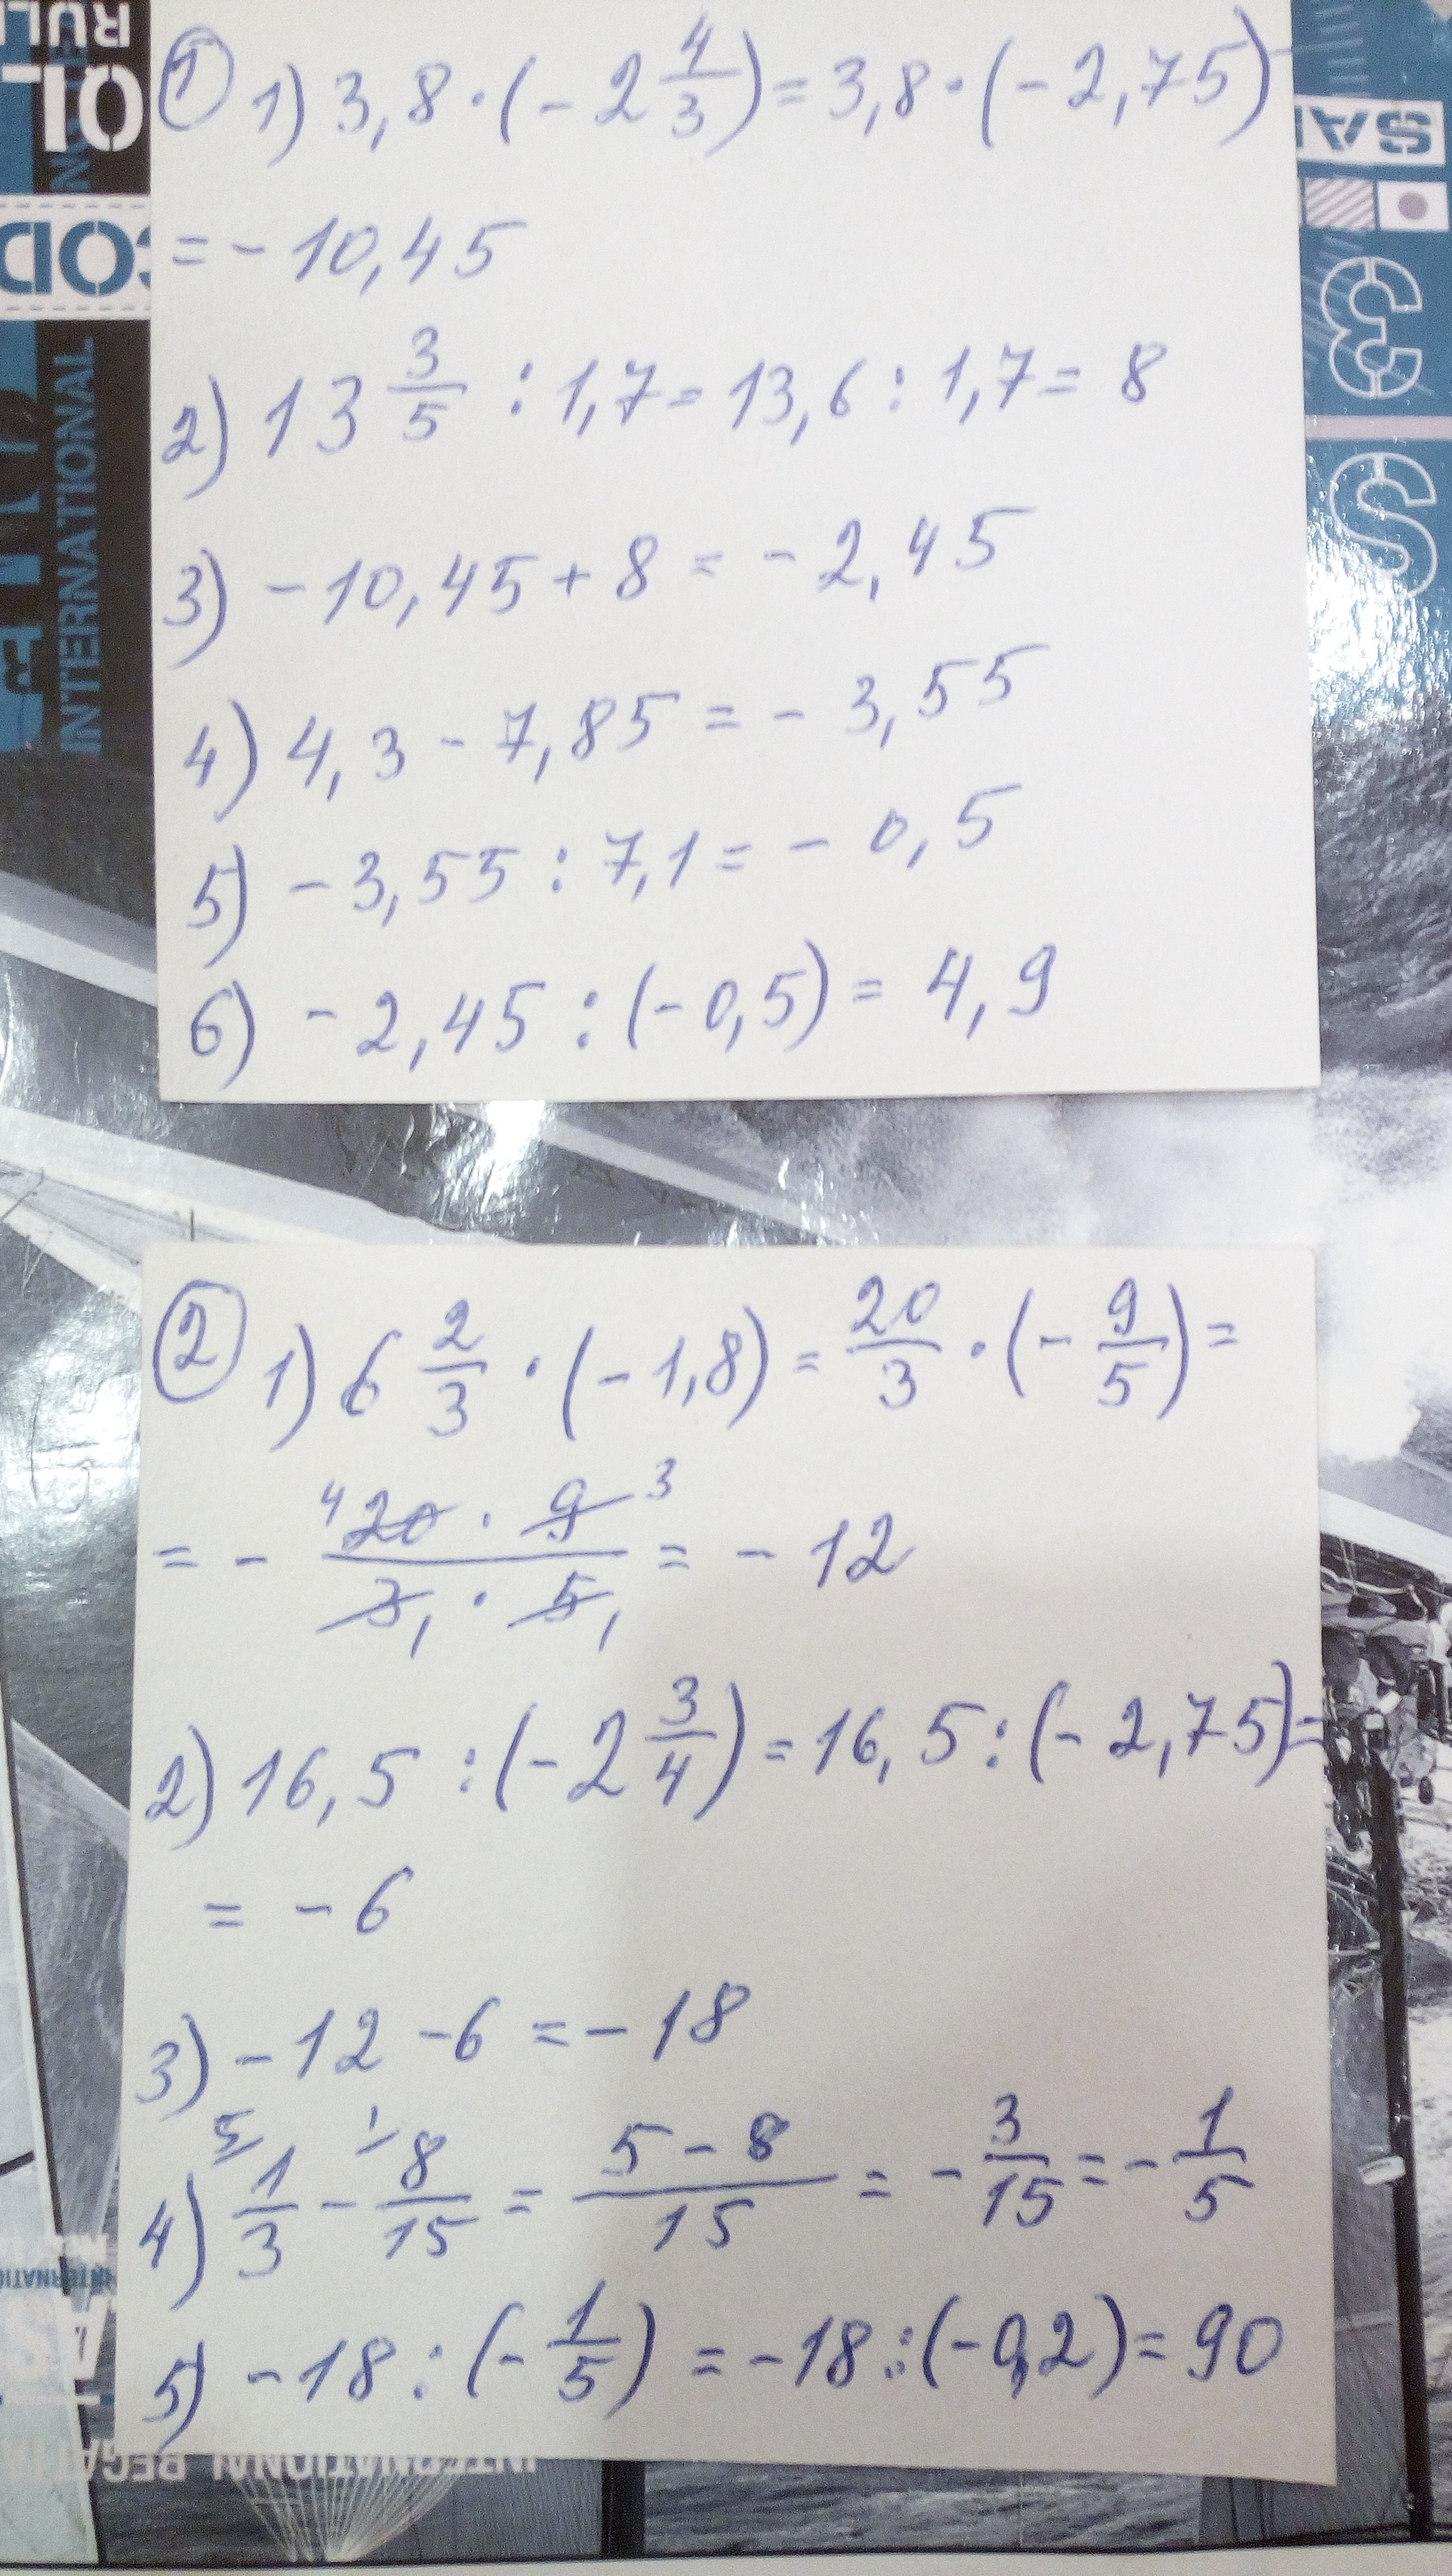 RULE
① 1) 3,8 · (- 2 4/3) = 3,8 · (- 2,75) =
= - 10,45
2) 13 3/5 : 1,7 = 13,6 : 1,7 = 8
3) - 10,45 + 8 = - 2,45
4) 4,3 - 7,85 = - 3,55
5) - 3,55 : 7,1 = - 0,5
6) - 2,45 : (- 0,5) = 4,9
INTERNATIONAL
② 1) 6 2/3 · (- 1,8) = 20/3 · (- 9/5) =
= - 4 20 · 9 3 / 3 1 · 5 1 = - 12
2) 16,5 : (- 2 3/4) = 16,5 : (- 2,75) =
= - 6
3) - 12 - 6 = - 18
4) 5/ 1/3 - 1/ 8/15 = 5 - 8 / 15 = - 3/15 = - 1/5
5) - 18 : (- 1/5) = - 18 : (- 0,2) = 90
INTERNATIONAL REGAT